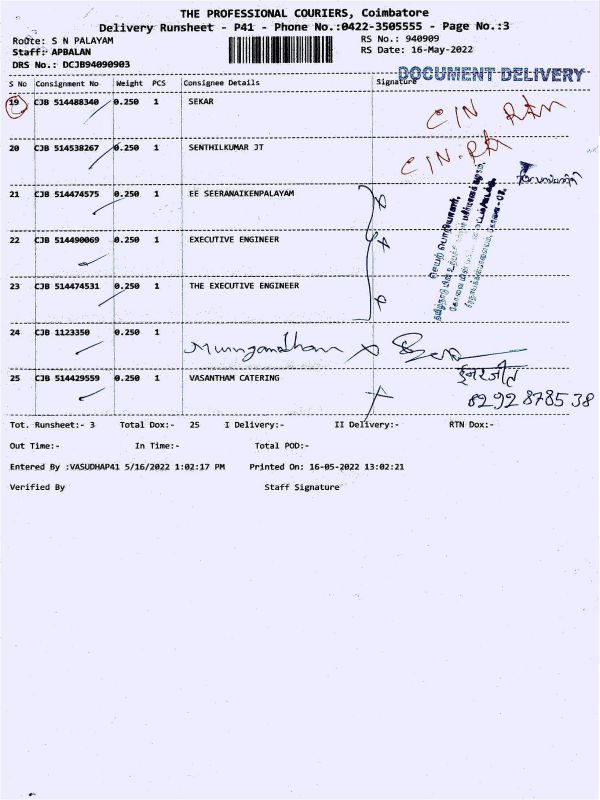 THE PROFESSIONAL COURIERS, Coimbatore
Delivery Runsheet - P41 - Phone No.:0422-3505555 - Page No.:3
Route: S N PALAYAM RS No.: 940909
Staff: APBALAN RS Date: 16-May-2022
DRS No.: DCJB94090903
DOCUMENT DELIVERY
S No Consignment No Weight PCS Consignee Details Signature
19 CJB 514488340 0.250 1 SEKAR
20 CJB 514538267 0.250 1 SENTHILKUMAR JT
21 CJB 514474575 0.250 1 EE SEERANAIKENPALAYAM
22 CJB 514490069 0.250 1 EXECUTIVE ENGINEER
23 CJB 514474531 0.250 1 THE EXECUTIVE ENGINEER
24 CJB 1123350 0.250 1
25 CJB 514429559 0.250 1 VASANTHAM CATERING
8292878538
Tot. Runsheet:- 3 Total Dox:- 25 I Delivery:- II Delivery:- RTN Dox:-
Out Time:- In Time:- Total POD:-
Entered By :VASUDHAP41 5/16/2022 1:02:17 PM Printed On: 16-05-2022 13:02:21
Verified By Staff Signature